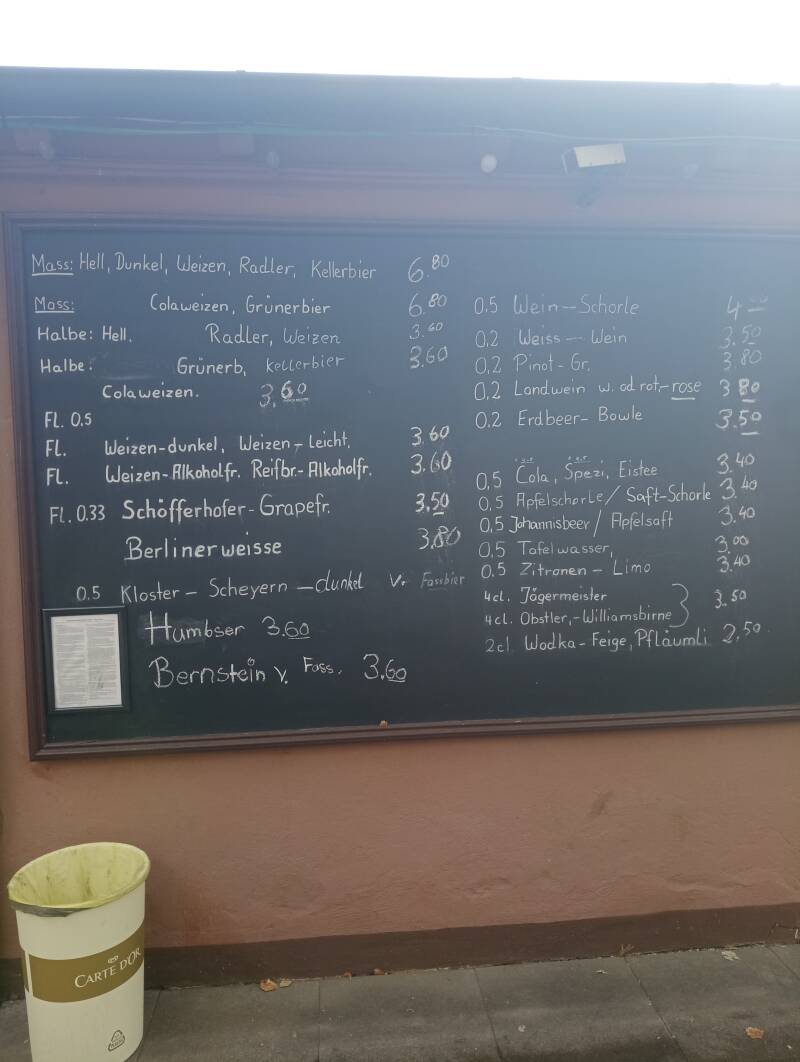 Mass: Hell, Dunkel, Weizen, Radler, Kellerbier 6.80
Mass: Colaweizen, Grünerbier 6.80
Halbe: Hell. Radler, Weizen 3.60
Halbe: Grünerb, Kellerbier 3.60
Colaweizen. 3.60
Fl. 0.5
Fl. Weizen-dunkel, Weizen-Leicht, 3.60
Fl. Weizen-Alkoholfr. Reifbr.-Alkoholfr. 3.60
Fl. 0.33 Schöfferhofer-Grapefr. 3.50
Berlinerweisse 3.80
0.5 Kloster-Scheyern-dunkel v. Fassbier
Humbser 3.60
Bernstein v. Fass. 3.60
0.5 Wein-Schorle 4.00
0,2 Weiss-Wein 3.50
0,2 Pinot-Gr. 3.80
0,2 Landwein w. od rot,-rose 3 80
0.2 Erdbeer-Bowle 3.50
0,5 Cola, Spezi, Eistee 3.40
0,5 Apfelschorle/Saft-Schorle 3.40
0,5 Johannisbeer/Apfelsaft 3.40
0,5 Tafelwasser, 3.00
0,5 Zitronen-Limo 3.40
4cl. Jägermeister
4cl. Obstler,-Williamsbirne 3.50
2cl Wodka-Feige, Pfläumli 2,50
CARTE D'OR